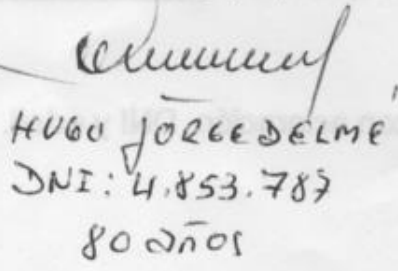 HUGO JORGE DELMÉ
DNI: 4.853.787
80 años